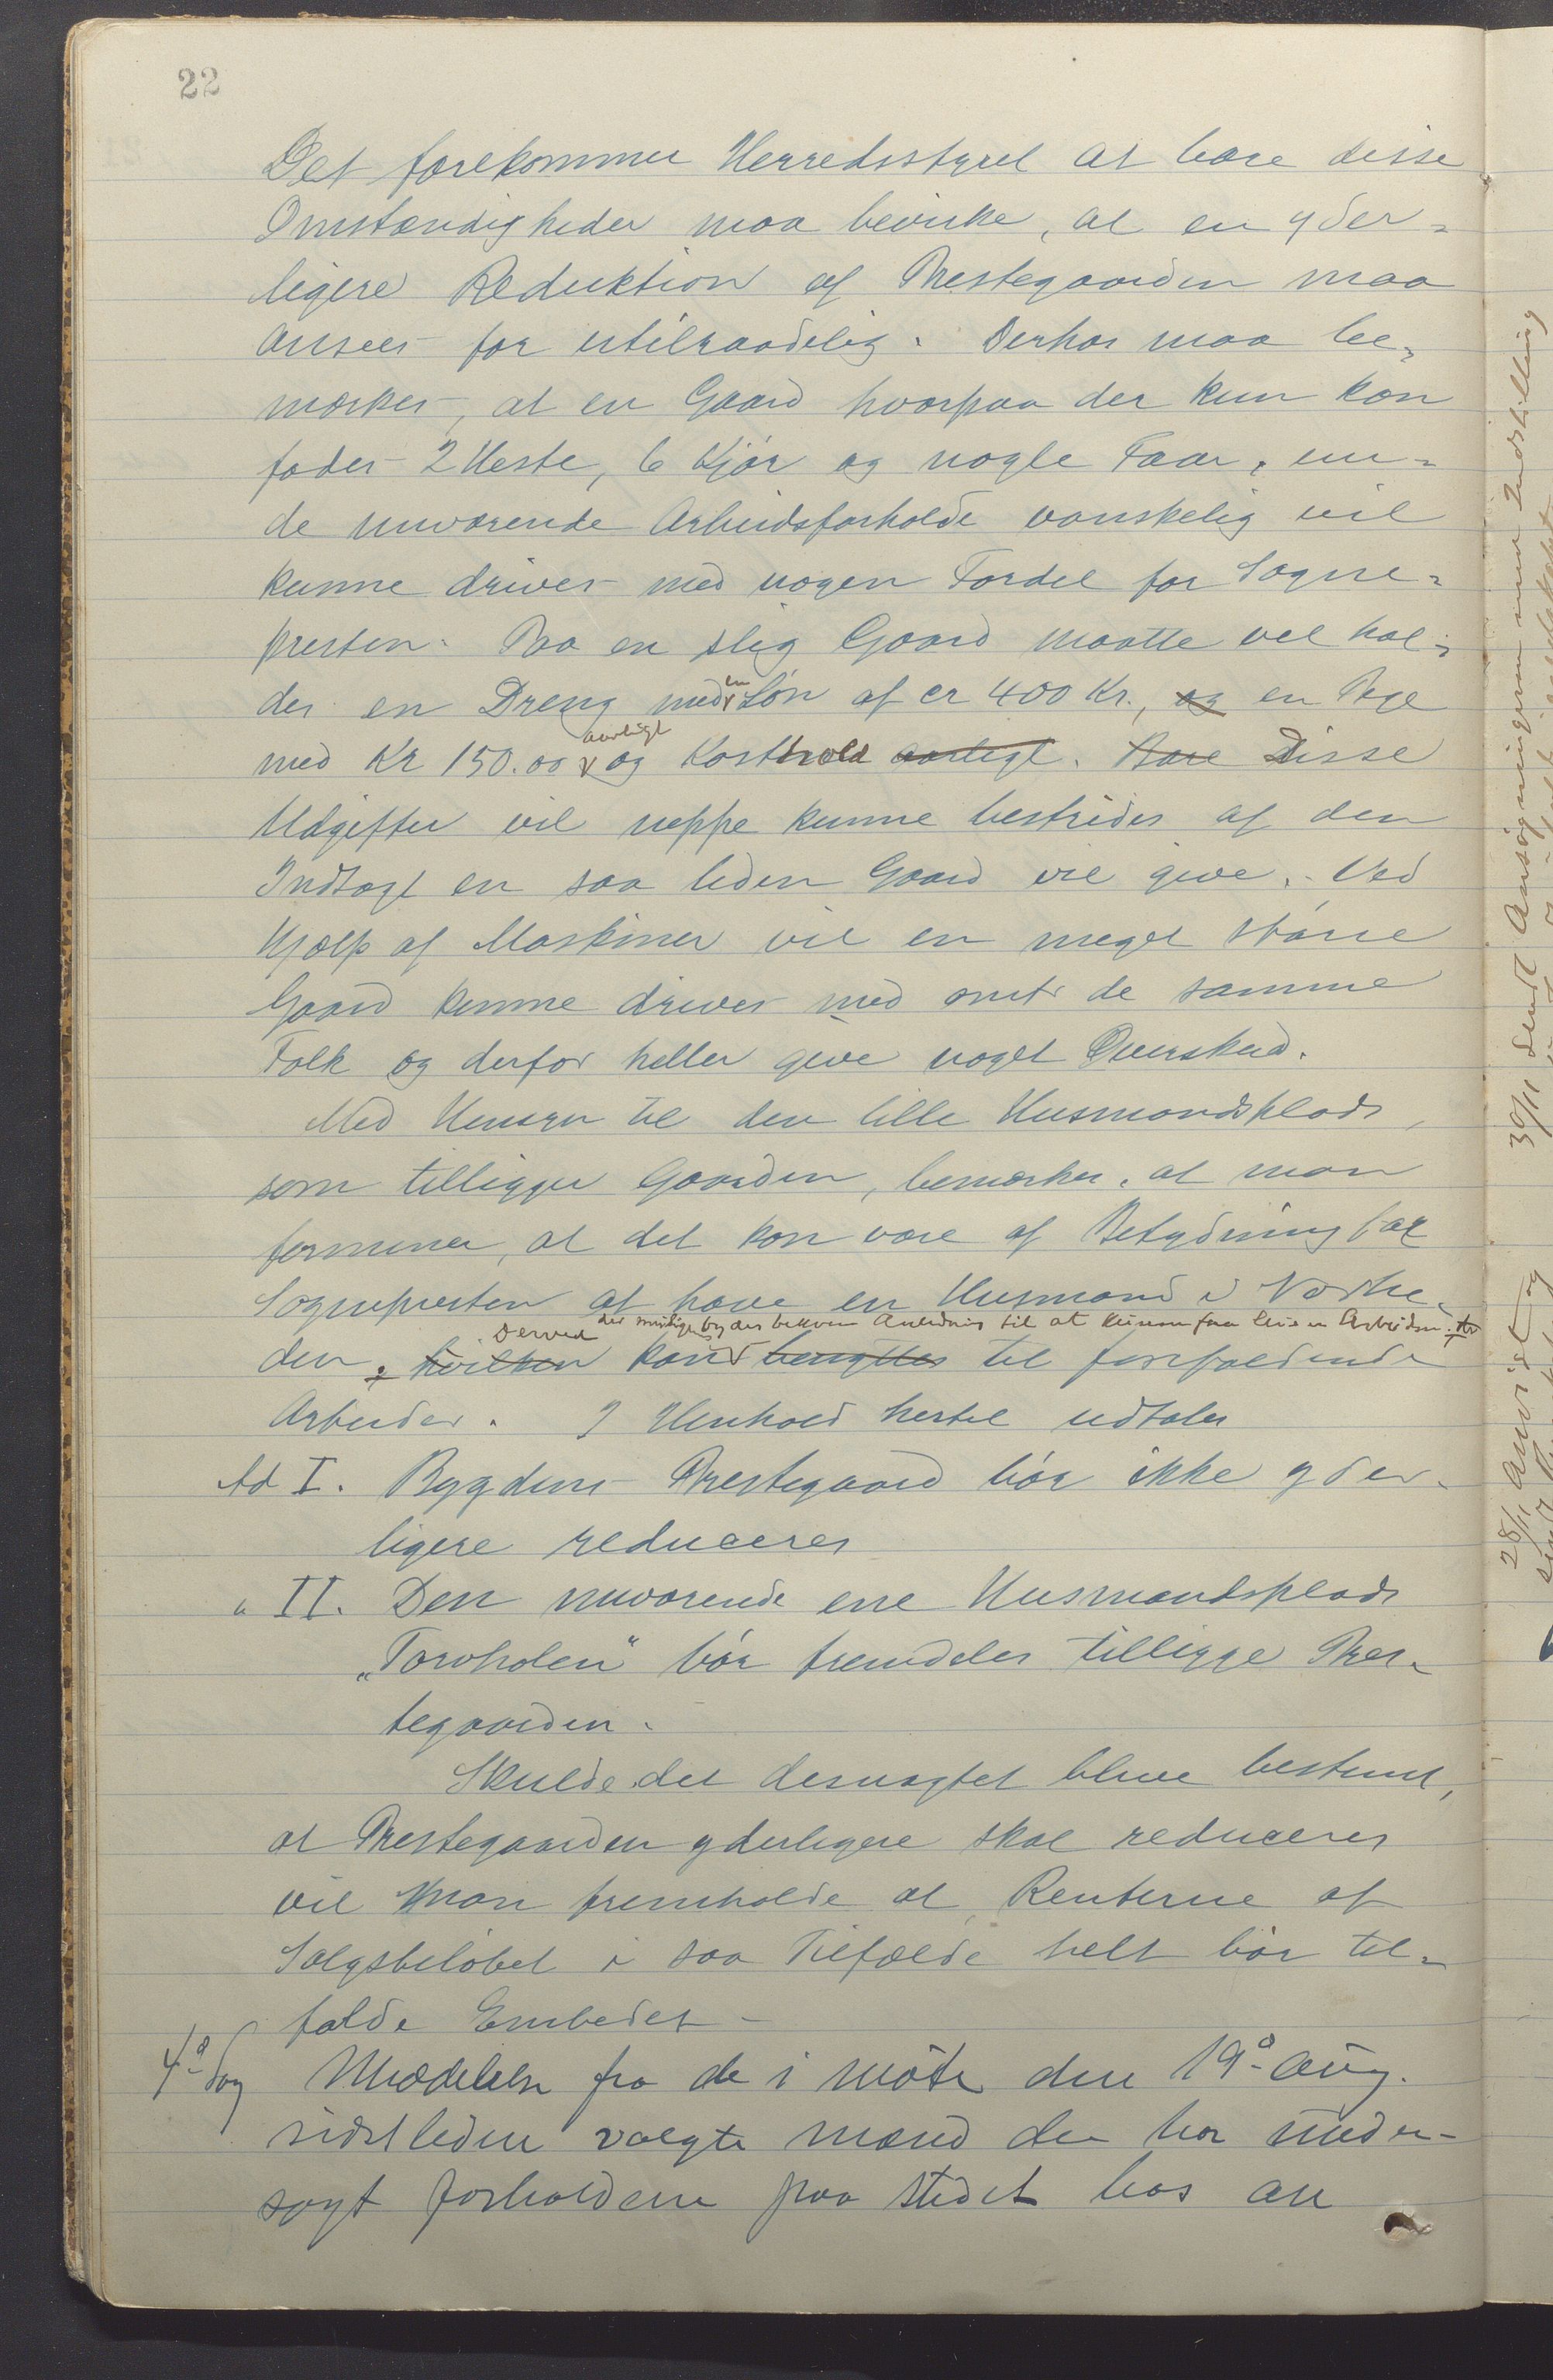 22
Det forekommer Herredsstyret at bare disse
Omstændigheder maa bevirke, at en yder-
ligere Reduktion af Prestegaarden maa
ansees for utilraadelig. Derhos maa be-
mærkes, at en Gaard hvorpaa der kun kan
fødes 2 Heste, 6 Kjør og nogle Faar, un-
de nuværende Arbeidsforholde vanskelig vil
kunne drives med nogen Fordel for Sogne-
presten. Paa en slig Gaard maatte vel hol-
des en Dreng med en Løn af ca 400 Kr., og en Pige
med Kr 150.00 aarligt og Kosthold aarligt. Bare Disse
Udgifter vil neppe kunne bestrides af den
Indtægt en saa liden Gaard vil give. Ved
Hjælp af Maskiner vil en meget større
Gaard kunne drives med omtr de samme
Folk og derfor heller give noget Overskud.
Med Hensyn til den lille Husmandsplads,
som tilligger Gaarden, bemærkes, at man
formener, at det kan være af Betydning for
Sognepresten at have en Husmand i Nærhe-
den, hvilken kan benyttes til forefaldende
Derved der muligens bydes bekvem Anledning til at kunne faa leie en Arbeidsm.
Arbeider. I Henhold hertil udtales
Ad I. Bygdens Prestegaard bør ikke yder-
ligere reduceres
" II. Den nuværende ene Husmandsplads
"Torvholen" bør fremdeles tilligge Pres-
tegaarden.
Skulde det desuagtet blive bestemt,
at Prestegaarden yderligere skal reduceres
vil man fremholde at Renterne af
Salgsbeløbet i saa Tilfælde helt bør til-
falde Embedet -
4de Sag Meddelelse fra de i møte den 19de Aug.
sidstleden valgte mænd der har under-
søgt forholdene paa stedet hos an
30/11 sendt Ansøgningerne med Indstilling
28/11 anvist og